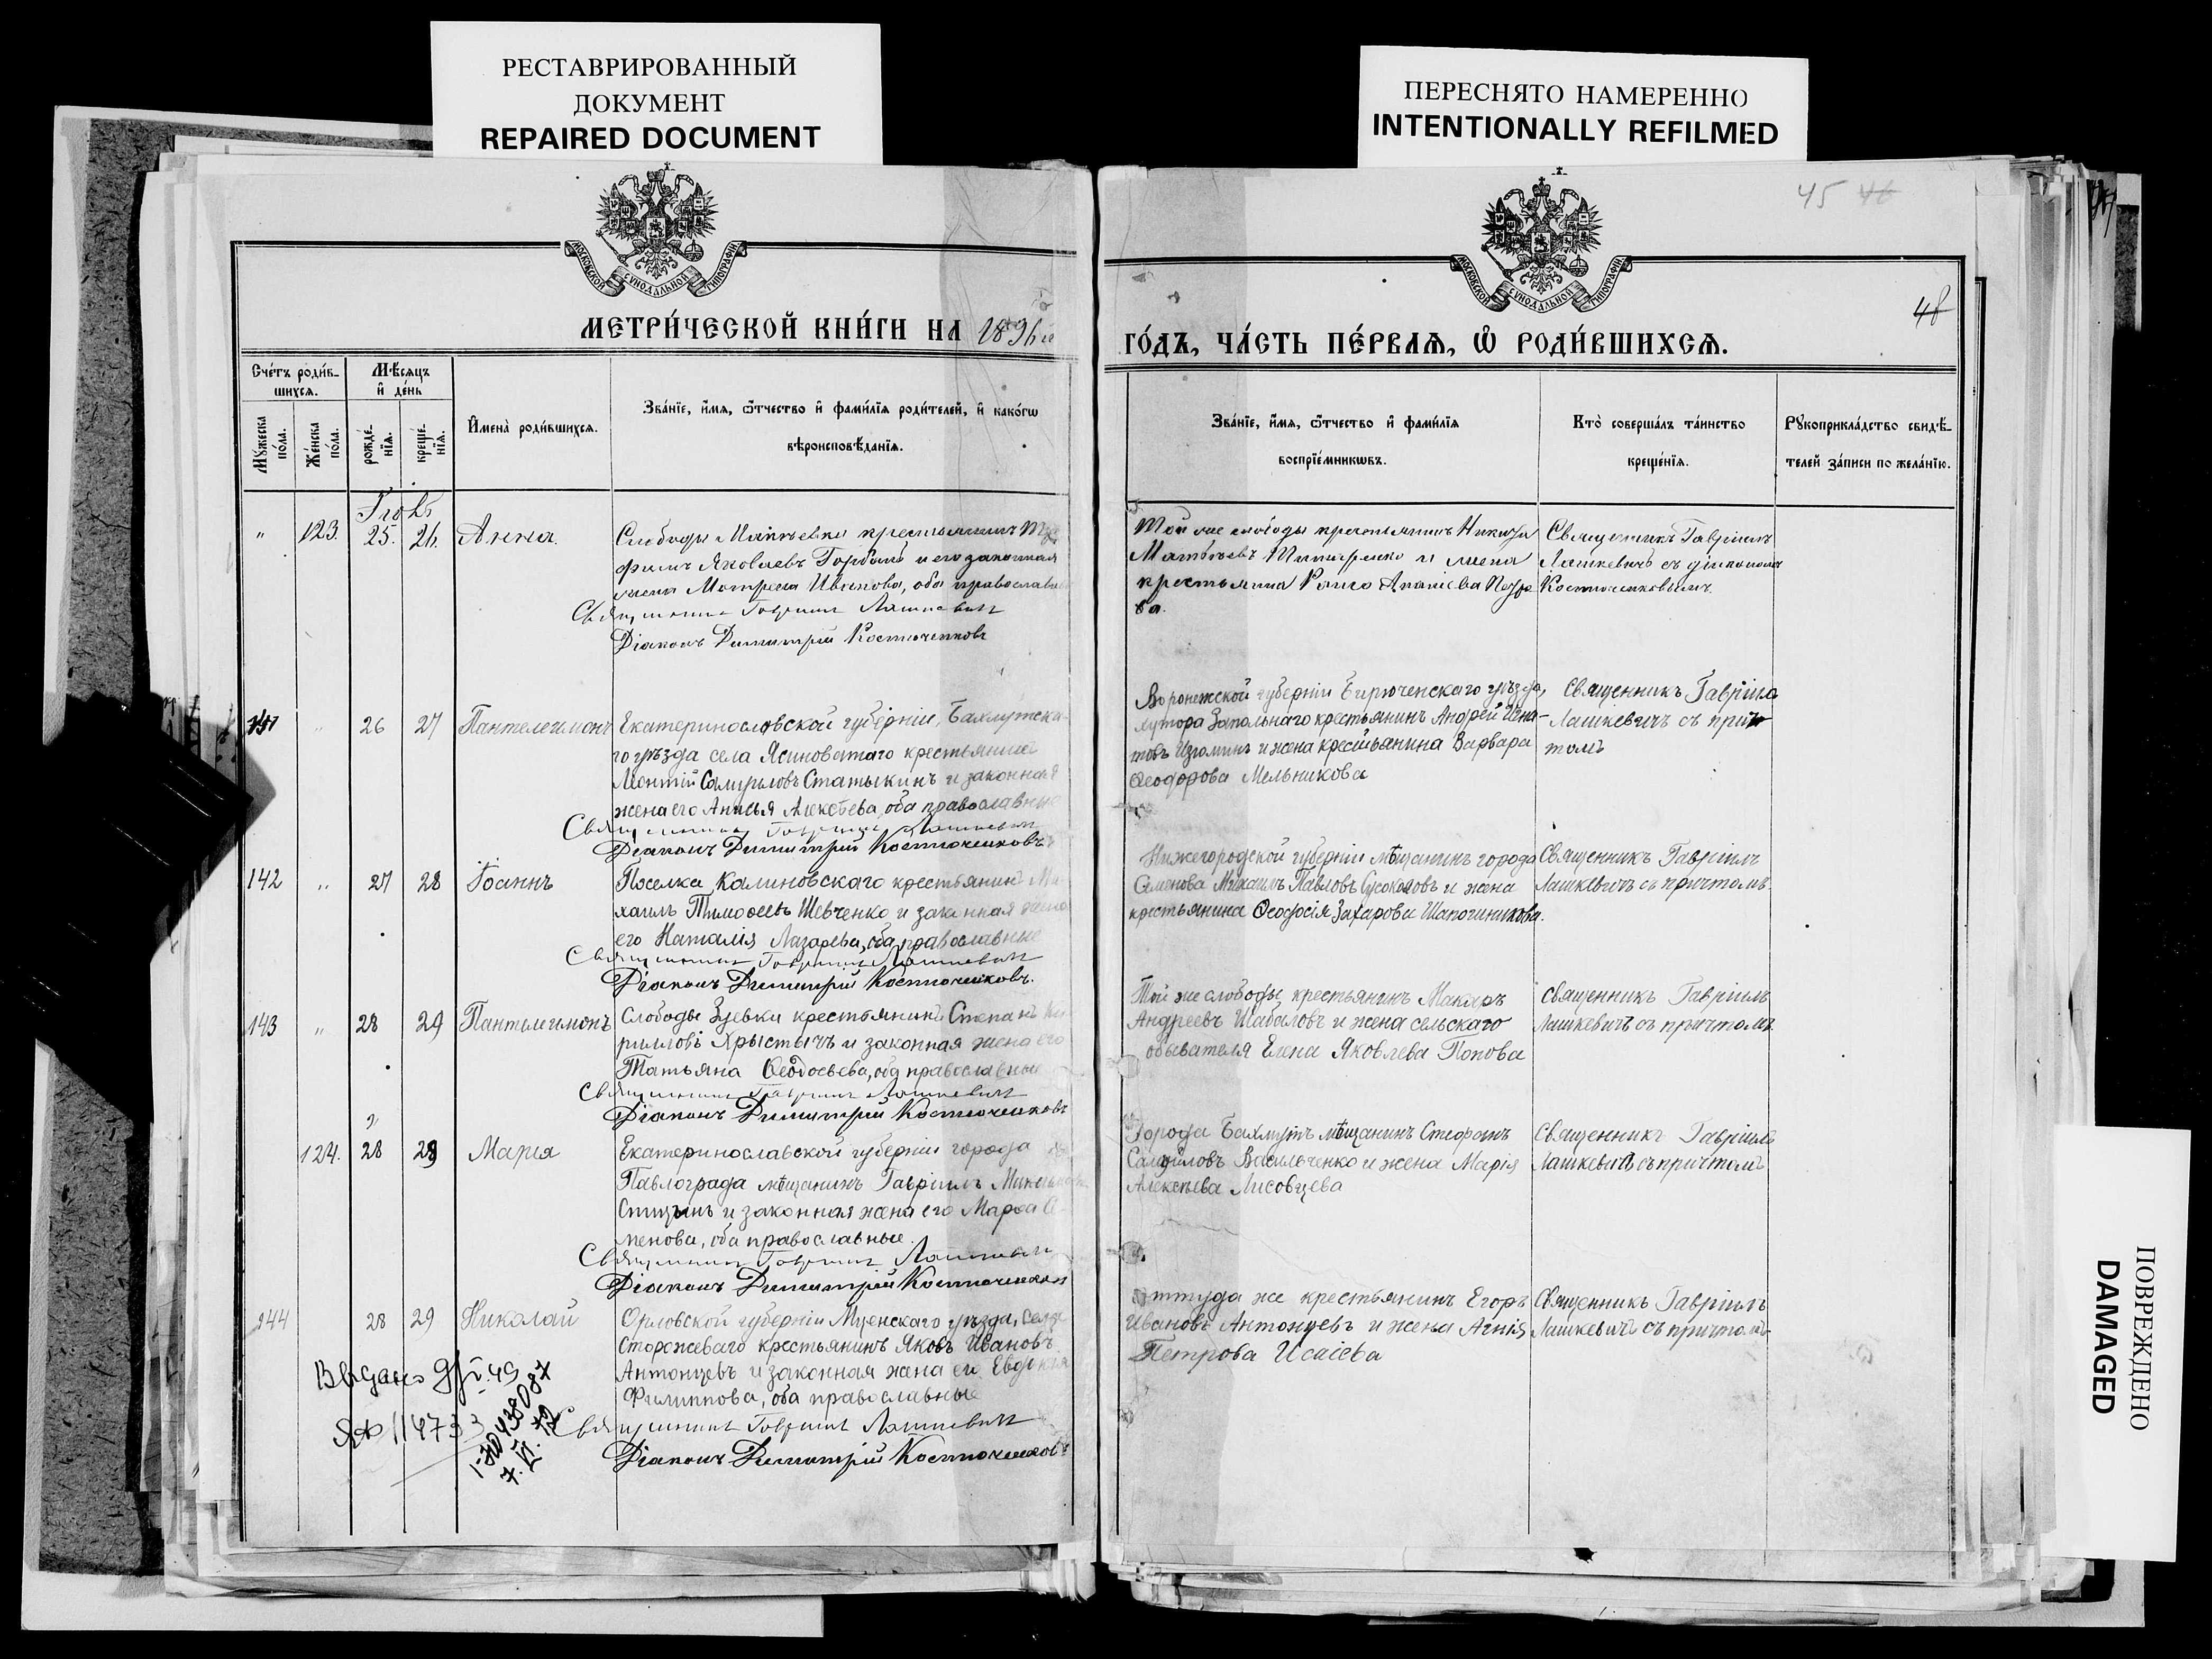 РЕСТАВРИРОВАННЫЙ
ДОКУМЕНТ
REPAIRED DOCUMENT
ПЕРЕСНЯТО НАМЕРЕННО
INTENTIONALLY REFILMED
45 46
48
МОСКОВСКОЙ СУНОДАЛЬНОЙ ТИПОГРАФІИ
МОСКОВСКОЙ СУНОДАЛЬНОЙ ТИПОГРАФІИ
МЕТРИ́ЧЕСКОЙ КНИ́ГИ НА 1896
ГО́ДЪ, ЧА́СТЬ ПЕ́РВАЯ, Ѿ РОДИ́ВШИХСЯ.
Сче́тъ роди́в-
шихся.
Мѣ́сяцъ
и҆ де́нь
Му́жеска
по́ла.
Же́нска
по́ла.
рожде́-
нїя.
креще́-
нїя.
И҆мена̀ роди́вшихся.
Зва́нїе, и҆́мя, ѻ҆́тчество и҆ фами́лїя роди́телей, и҆ како́гѡ
вѣроисповѣ́данїя.
Зва́нїе, и҆́мя, ѻ҆́тчество и҆ фами́лїя
воспрїе́мникѡвъ.
Кто̀ соверша́лъ та́инство
креще́нїя.
Рꙋкоприкла́дство свидѣ́-
телей за́писи по жела́нїю.
" 123. 25. 26. Анна.
Слободы крестьянинъ
Яковлевъ и его законная
жена Матрена Иванова, оба православные
Священникъ Гавріилъ Лашкевичъ
Діаконъ Димитрій Костюченковъ
Той же слободы крестьянинъ Никита
Матвѣевъ и жена
крестьянина
ва.
Священникъ Гавріилъ
Лашкевичъ съ діакономъ
Костюченковымъ.
141 " 26 27 Пантелеимонъ
Екатеринославской губерніи, Бахмутска-
го уѣзда села Ясиноватаго крестьянинъ
Леонтій Самуиловъ Статыкинъ и законная
жена его Анисья Алексѣева, оба православные
Священникъ Гавріилъ Лашкевичъ
Діаконъ Димитрій Костюченковъ
Воронежской губерніи Бирюченскаго уѣзда,
хутора Запольнаго крестьянинъ Андрей Игна-
товъ Изюминъ и жена крестьянина Варвара
Ѳеодорова Мельникова
Священникъ Гавріилъ
Лашкевичъ съ прич-
томъ
142 " 27 28 Іоаннъ
Поселка Калиновскаго крестьянинъ Ми-
хаилъ Тимоѳеевъ Шевченко и законная жена
его Наталія Лазарева, оба православные
Священникъ Гавріилъ Лашкевичъ
Діаконъ Димитрій Костюченковъ.
Нижегородской губерніи мѣщанинъ города
Семенова Михаилъ Павловъ Сусоколовъ и жена
крестьянина Ѳеодосія Захарова Шапошникова.
Священникъ Гавріилъ
Лашкевичъ съ причтомъ.
143 " 28 29 Пантелеимонъ
Слободы Зуевки крестьянинъ Стефанъ Ки-
рилловъ Хрыстычъ и законная жена его
Татьяна Ѳеодосьева, оба православные
Священникъ Гавріилъ Лашкевичъ
Діаконъ Димитрій Костюченковъ
Той же слободы крестьянинъ Макаръ
Андреевъ Шабаловъ и жена сельскаго
обывателя Елена Яковлева Попова
Священникъ Гавріилъ
Лашкевичъ съ причтомъ.
" 124. 28 29 Марія
Екатеринославской губерніи города
Павлограда мѣщанинъ Гавріилъ
Спицынъ и законная жена его Марѳа Се-
менова, оба православные.
Священникъ Гавріилъ Лашкевичъ
Діаконъ Димитрій Костюченковъ
Города Бахмута мѣщанинъ Стефанъ
Самуиловъ Васильченко и жена Марія
Алексѣева Лисовцева
Священникъ Гавріилъ
Лашкевичъ съ причтомъ
144 28 29 Николай
Орловской губерніи Мценскаго уѣзда, села
Сторожеваго крестьянинъ Яковъ Ивановъ
Антонцевъ и законная жена его Евдокія
Филиппова, оба православные
Священникъ Гавріилъ Лашкевичъ
Діаконъ Димитрій Костюченковъ
Оттуда же крестьянинъ Егоръ
Ивановъ Антонцевъ и жена Агнія
Петрова Исаіева
Священникъ Гавріилъ
Лашкевичъ съ причтомъ
ПОВРЕЖДЕНО
DAMAGED